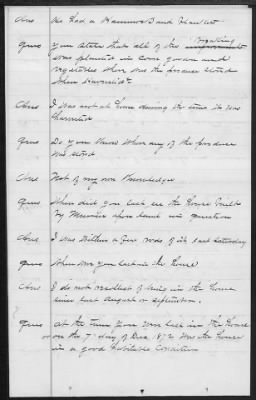 Ans We had a Hammer and Hatchet
Ques You state that all of the breaking
was planted in corn, garden and
vegetables when was the produce stored
when harvested.
Ans I was not at home during the time it was
harvested
Ques Do you know where any of the produce
was stored
Ans Not of my own Knowledge
Ques When did you last see the House built
by on the land in question
Ans I was within a few rods of it last Saturday
Ques When were you last in the house
Ans I do not recollect of being in the house
since last August or September.
Ques At the time you were last in the House
or on the 7th day of Dec 1872 was the house
in a good habitable Condition